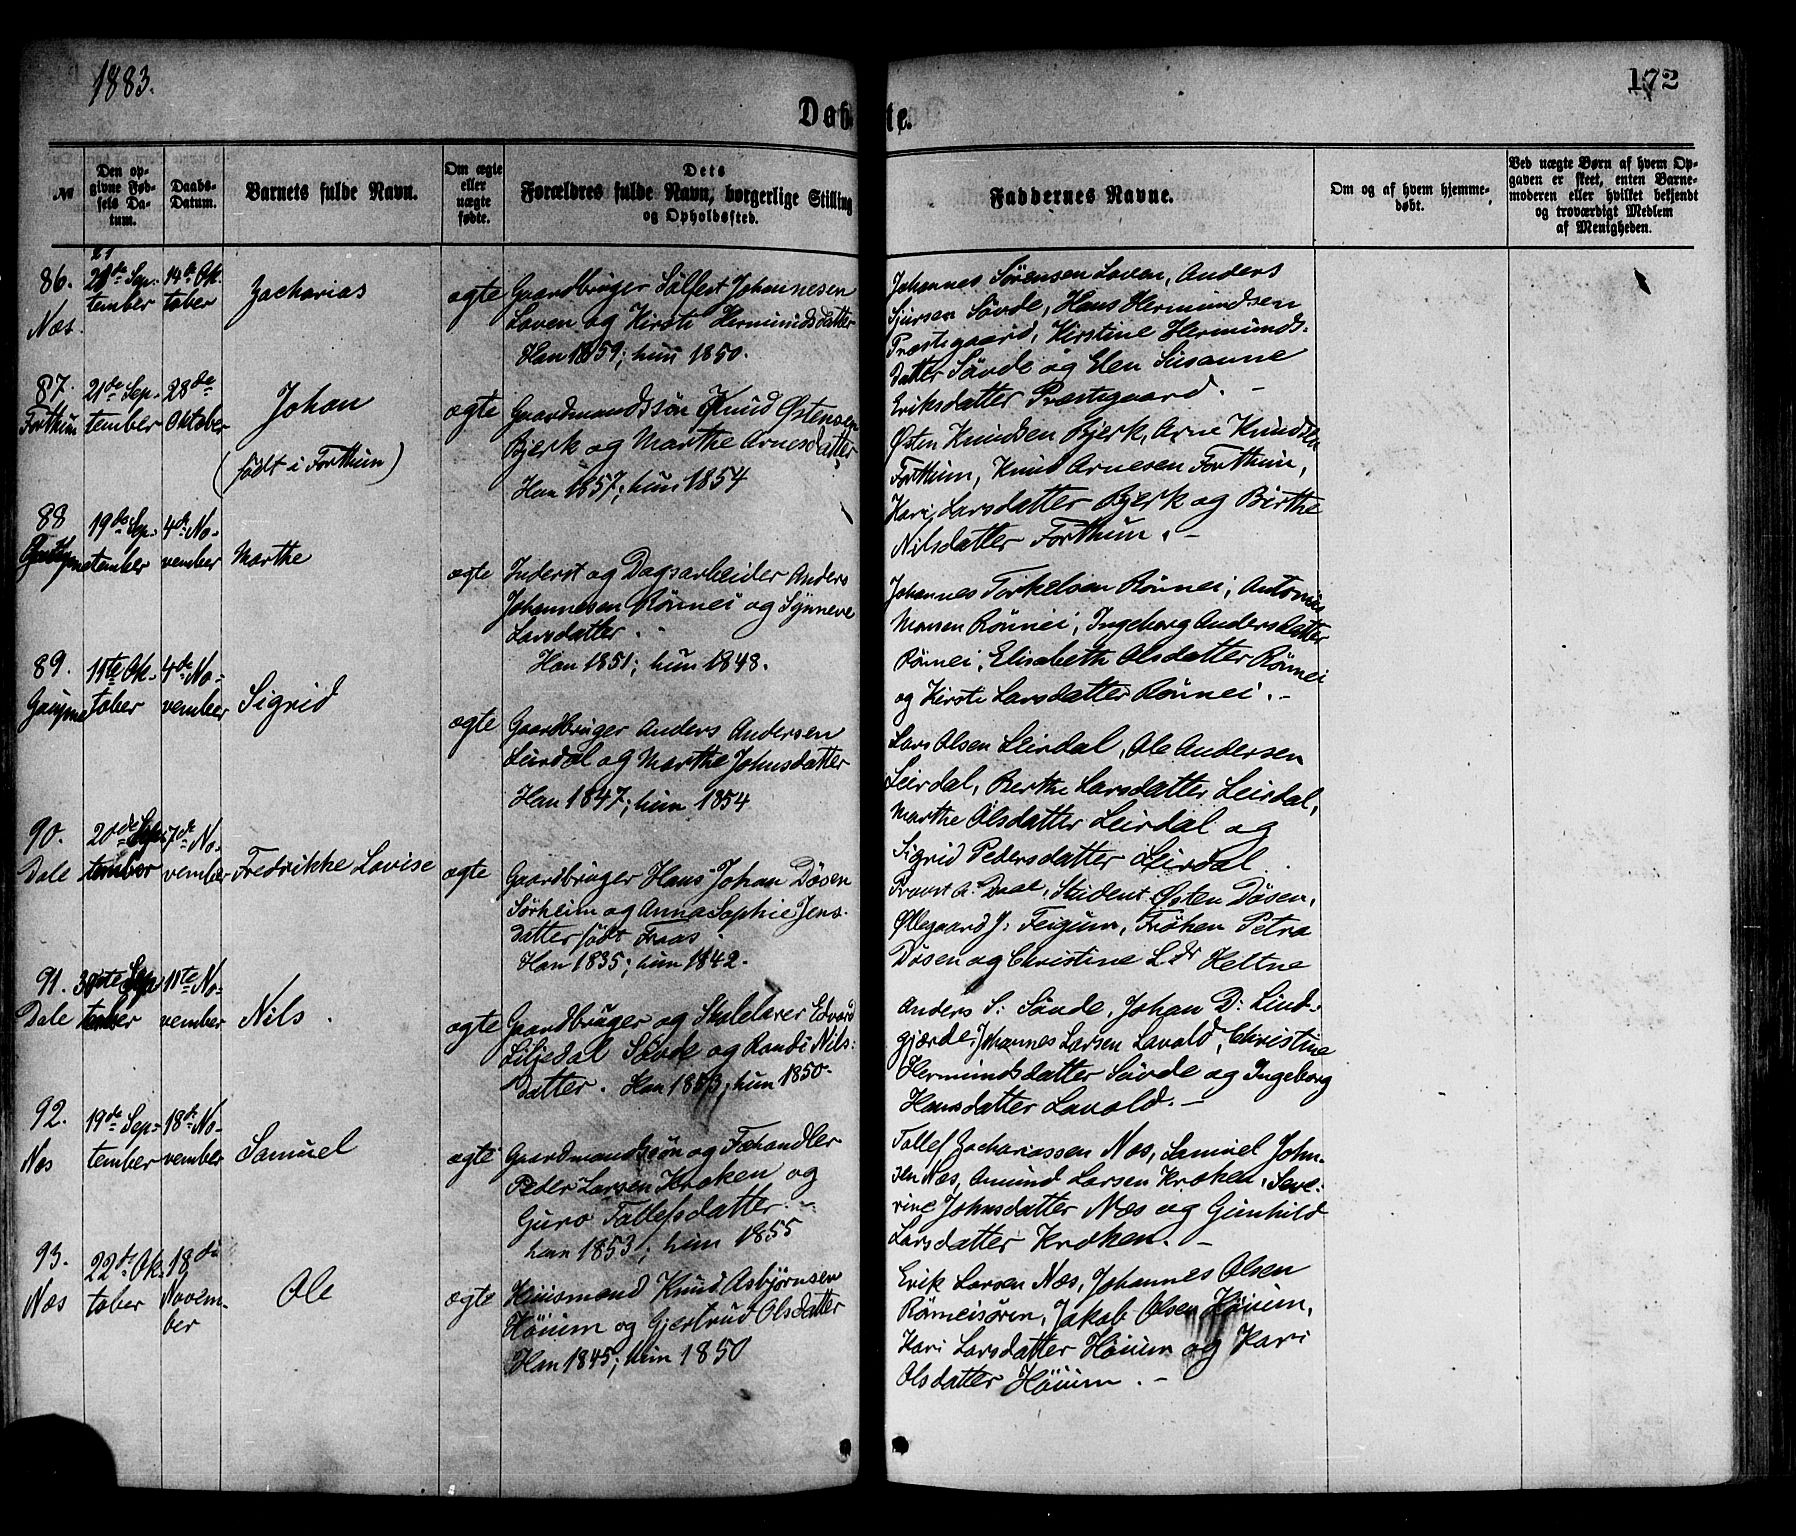 1883.
172
Døbte.
№
Den opgivne Fødsels Datum.
Daabs-Datum.
Barnets fulde Navn.
Om ægte eller uægte fødte.
Dets Forældres fulde Navn, borgerlige Stilling og Opholdssted.
Faddernes Navne.
Om og af hvem hjemmedøbt.
Ved uægte Børn af hvem Opgaven er skeet, enten Barnemoderen eller hvilket bekjendt og troværdigt Medlem af Menigheden.
86.
Næs.
21de Sep-
tember
14de Ok-
tober
Zacharias
ægte
Gaardbruger Sålfest Johannesen
Loven og Kirsti Hermundsdatter
Han 1859; hun 1850.
Johannes Sørensen Loven, Anders
Sjursen Søvde, Hans Hermundsen
Præstegaard, Kirstine Hermunds-
datter Søvde og Elen Susanne
Eriksdatter Præstegaard. -
87.
Forthun
21de Sep-
tember
28de
Oktober
Johan
(født i Forthun)
ægte
Gaardmandssøn Knud Østensen
Bjerk og Marthe Arnesdatter
Han 1857; hun 1854
Østen Knudsen Bjerk, Arne Knudsen
Forthun, Knud Arnesen Forthun,
Kari Larsdatter Bjerk og Birthe
Nilsdatter Forthun. -
88
19de Sep-
tember
4de No-
vember
Marthe
ægte
Inderst og Dagsarbeider Anders
Johannesen Rønnei og Synneve
Larsdatter.
Han 1851; hun 1848.
Johannes Torkelsen Rønnei, Antonius
Monsen Rønnei, Ingeborg Andersdatter
Rønnei, Elisabeth Olsdatter Rønnei
og Kirsti Larsdatter Rønnei. -
89.
Gaupne
15te Ok-
tober
4de No-
vember
Sigrid
ægte
Gaardbruger Anders Andersen
Leirdal og Marthe Johnsdatter
Han 1847; hun 1854
Lars Olsen Leirdal, Ole Andersen
Leirdal, Berthe Larsdatter Leirdal,
Marthe Olsdatter Leirdal og
Sigrid Pedersdatter Leirdal.
90.
Dale
20de Sep-
tember
7de No-
vember
Fredrikke Lovise
ægte
Gaardbruger Hans Johan Døsen
Sørheim og Anna Sophie Jens-
datter født Fraas.
Han 1835; hun 1842.
Provst A. Dral, Student Østen Døsen,
Øllegaard J. Feigum, Frøken Petra
Døsen og Christine L.dr Heltne
91.
Dale
30te Sep-
tember
11te No-
vember
Nils
ægte
Gaardbruger og Skolelærer Edvard
Liljedal Søvde og Randi Nils-
datter. Han 1853; hun 1850.
Anders S. Søvde, Johan D. Lind-
gjærde, Johannes Larsen Lavold, Christine
Hermundsdatter Søvde og Ingeborg
Hansdatter Lavold. -
92.
Næs
19de Sep-
tember
18de No-
vember
Samuel
ægte
Gaardmandssøn og Fæhandler
Peder Larsen Kroken og
Guro Tollefsdatter. -
han 1853; hun 1855
Tollef Zachariassen Næs, Samuel John-
sen Næs, Amund Larsen Kroken, Seve-
rine Johnsdatter Næs og Gunhild
Larsdatter Kroken. -
93.
Næs
22de Ok-
tober
18de
Novem-
ber
Ole
ægte
Huusmand Knud Asbjørnsen
Høium og Gjertrud Olsdatter
Han 1845; hun 1850
Erik Larsen Næs, Johannes Olsen
Rønneisøren, Jakob Olsen Høium,
Kari Larsdatter Høium og Kari
Olsdatter Høium. -